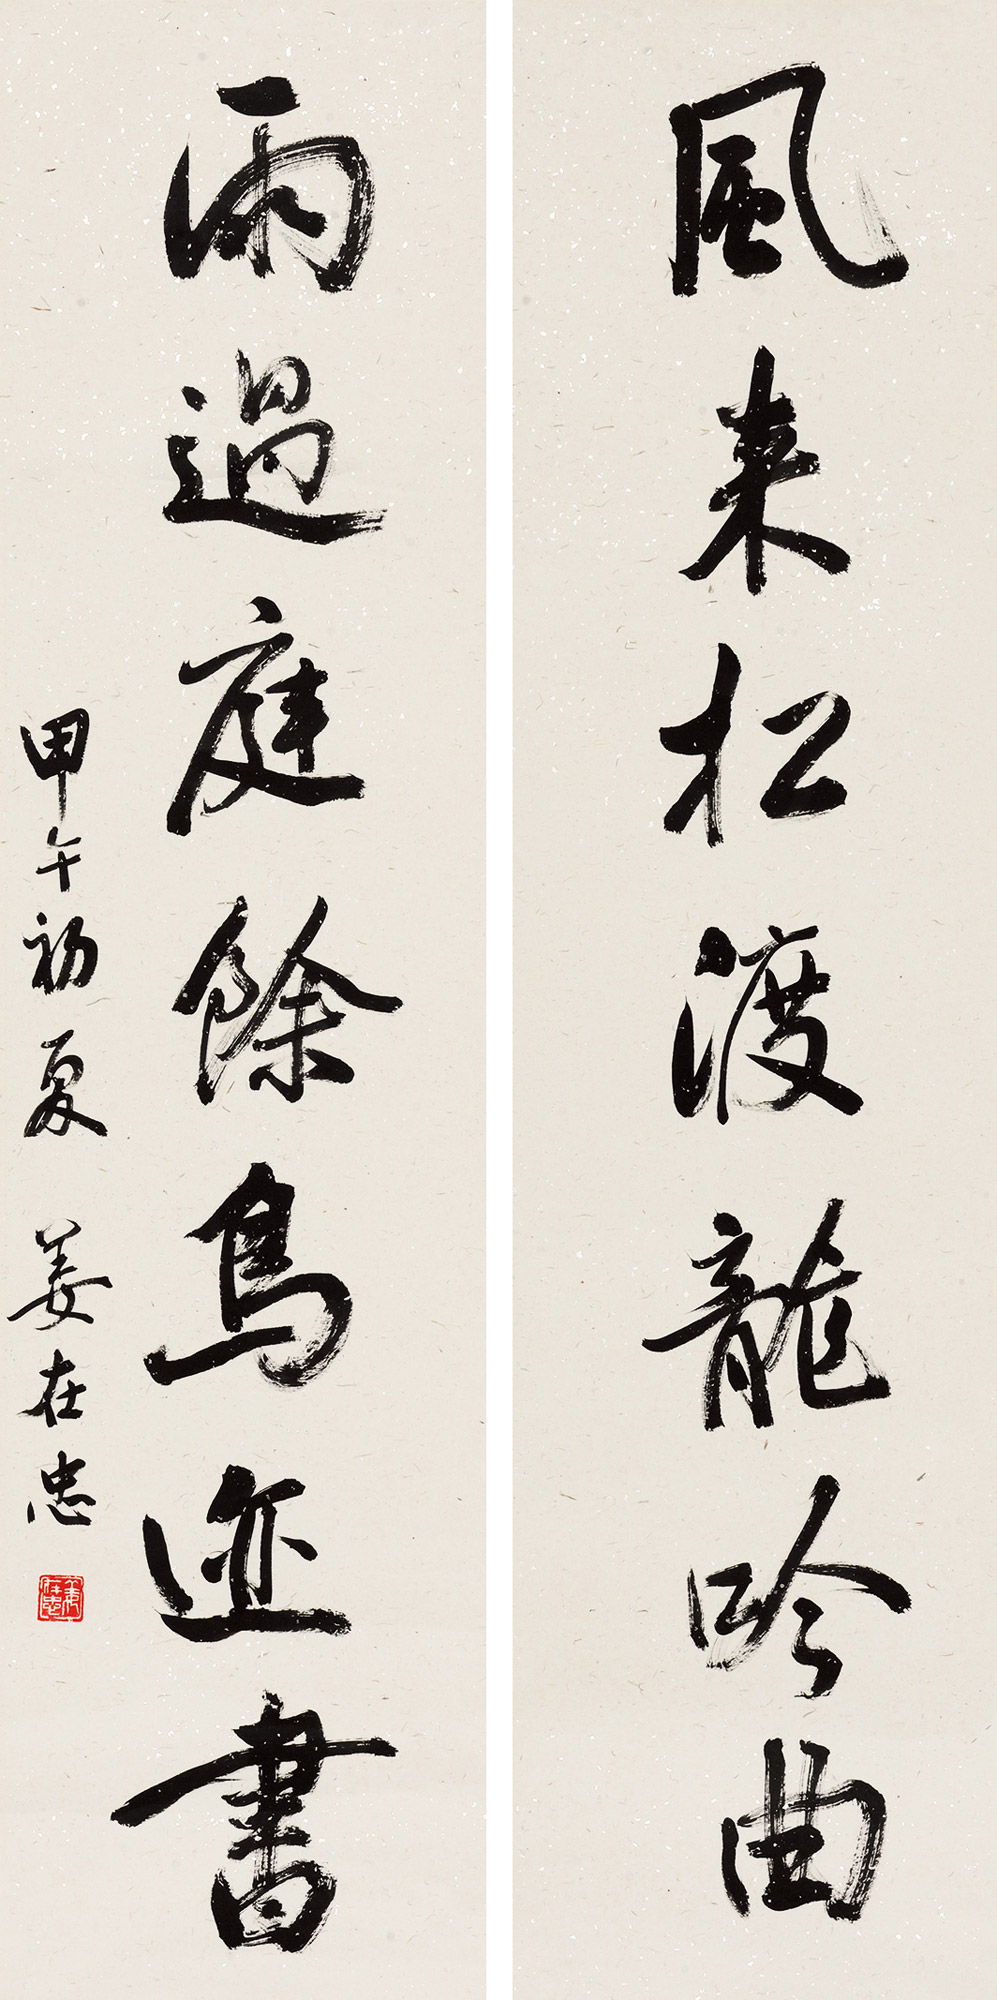 風来松渡龍吟曲
雨過庭餘鳥迹書
甲午初夏 姜在忠
姜在忠